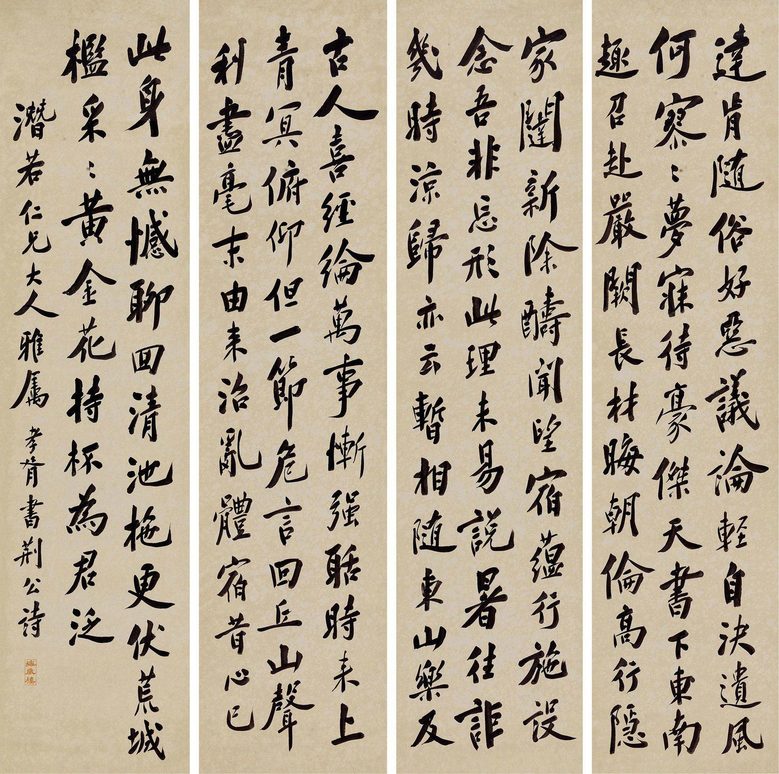 達肯随俗好惡議論輕自決遺風
何寥〻夢寐待豪傑天書下東南
趣召赴嚴闕長材晦朝倫高行隠
家闥新除醻聞望宿藴行施設
念吾非忘形此理未易説暑往詎
幾時涼歸亦云暫相随東山樂及
古人喜經綸萬事慚强聒時来上
青冥俯仰但一節危言回丘山聲
利盡毫末由来治亂體宿昔心已
此身無憾聊回清池拖更伏荒城
檻采〻黄金花持杯為君泛
潛若仁兄大人雅屬 孝胥書荆公詩